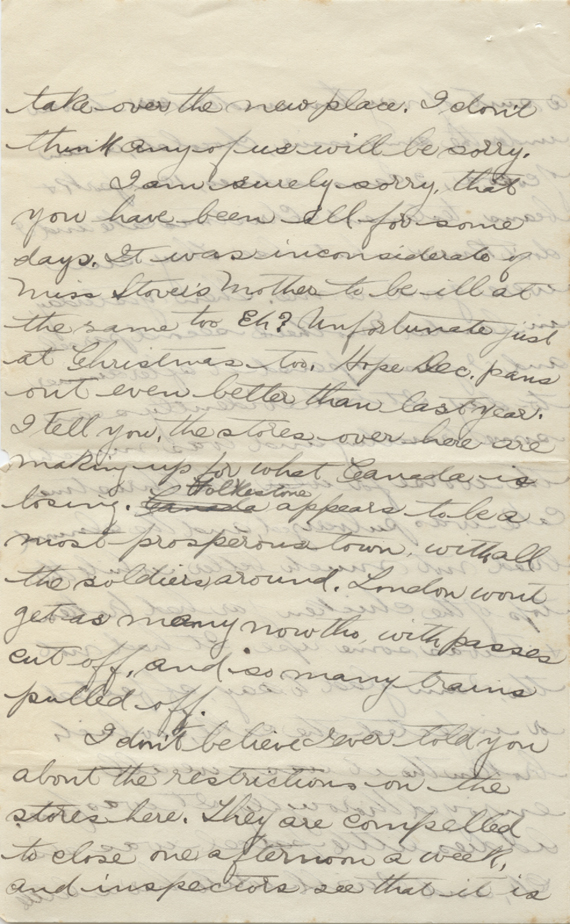 take over the new place. I don't
think any of us will be sorry.
I am surely sorry, that
you have been ill for some
days. It was inconsiderate of
Miss Stover's Mother to be ill at
the same too Eh? Unfortunate just
at Christmas too. Hope Dec. pans
out even better than last year.
I tell you, the stores over here are
making up for what Canada is
Folkestone
losing. Canada appears to be a
most prosperous town, with all
the soldiers around. London wont
get as many now tho, with passes
cut off, and so many trains
pulled off.
I don't believe I ever told you
about the restrictions on the
stores here. They are compelled
to close one afternoon a week,
and inspectors see that it is